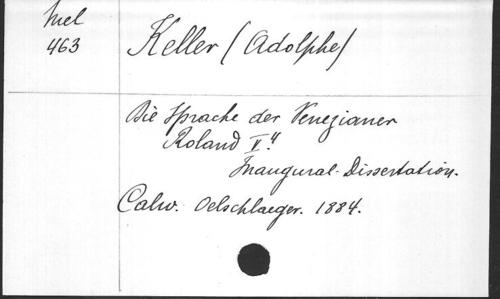 Mel
463
Keller (Adolphe)
Die Sprache der Venezianer
Roland V.4
Inaugural-Dissertation.
Calw. Oelschlaeger. 1884.